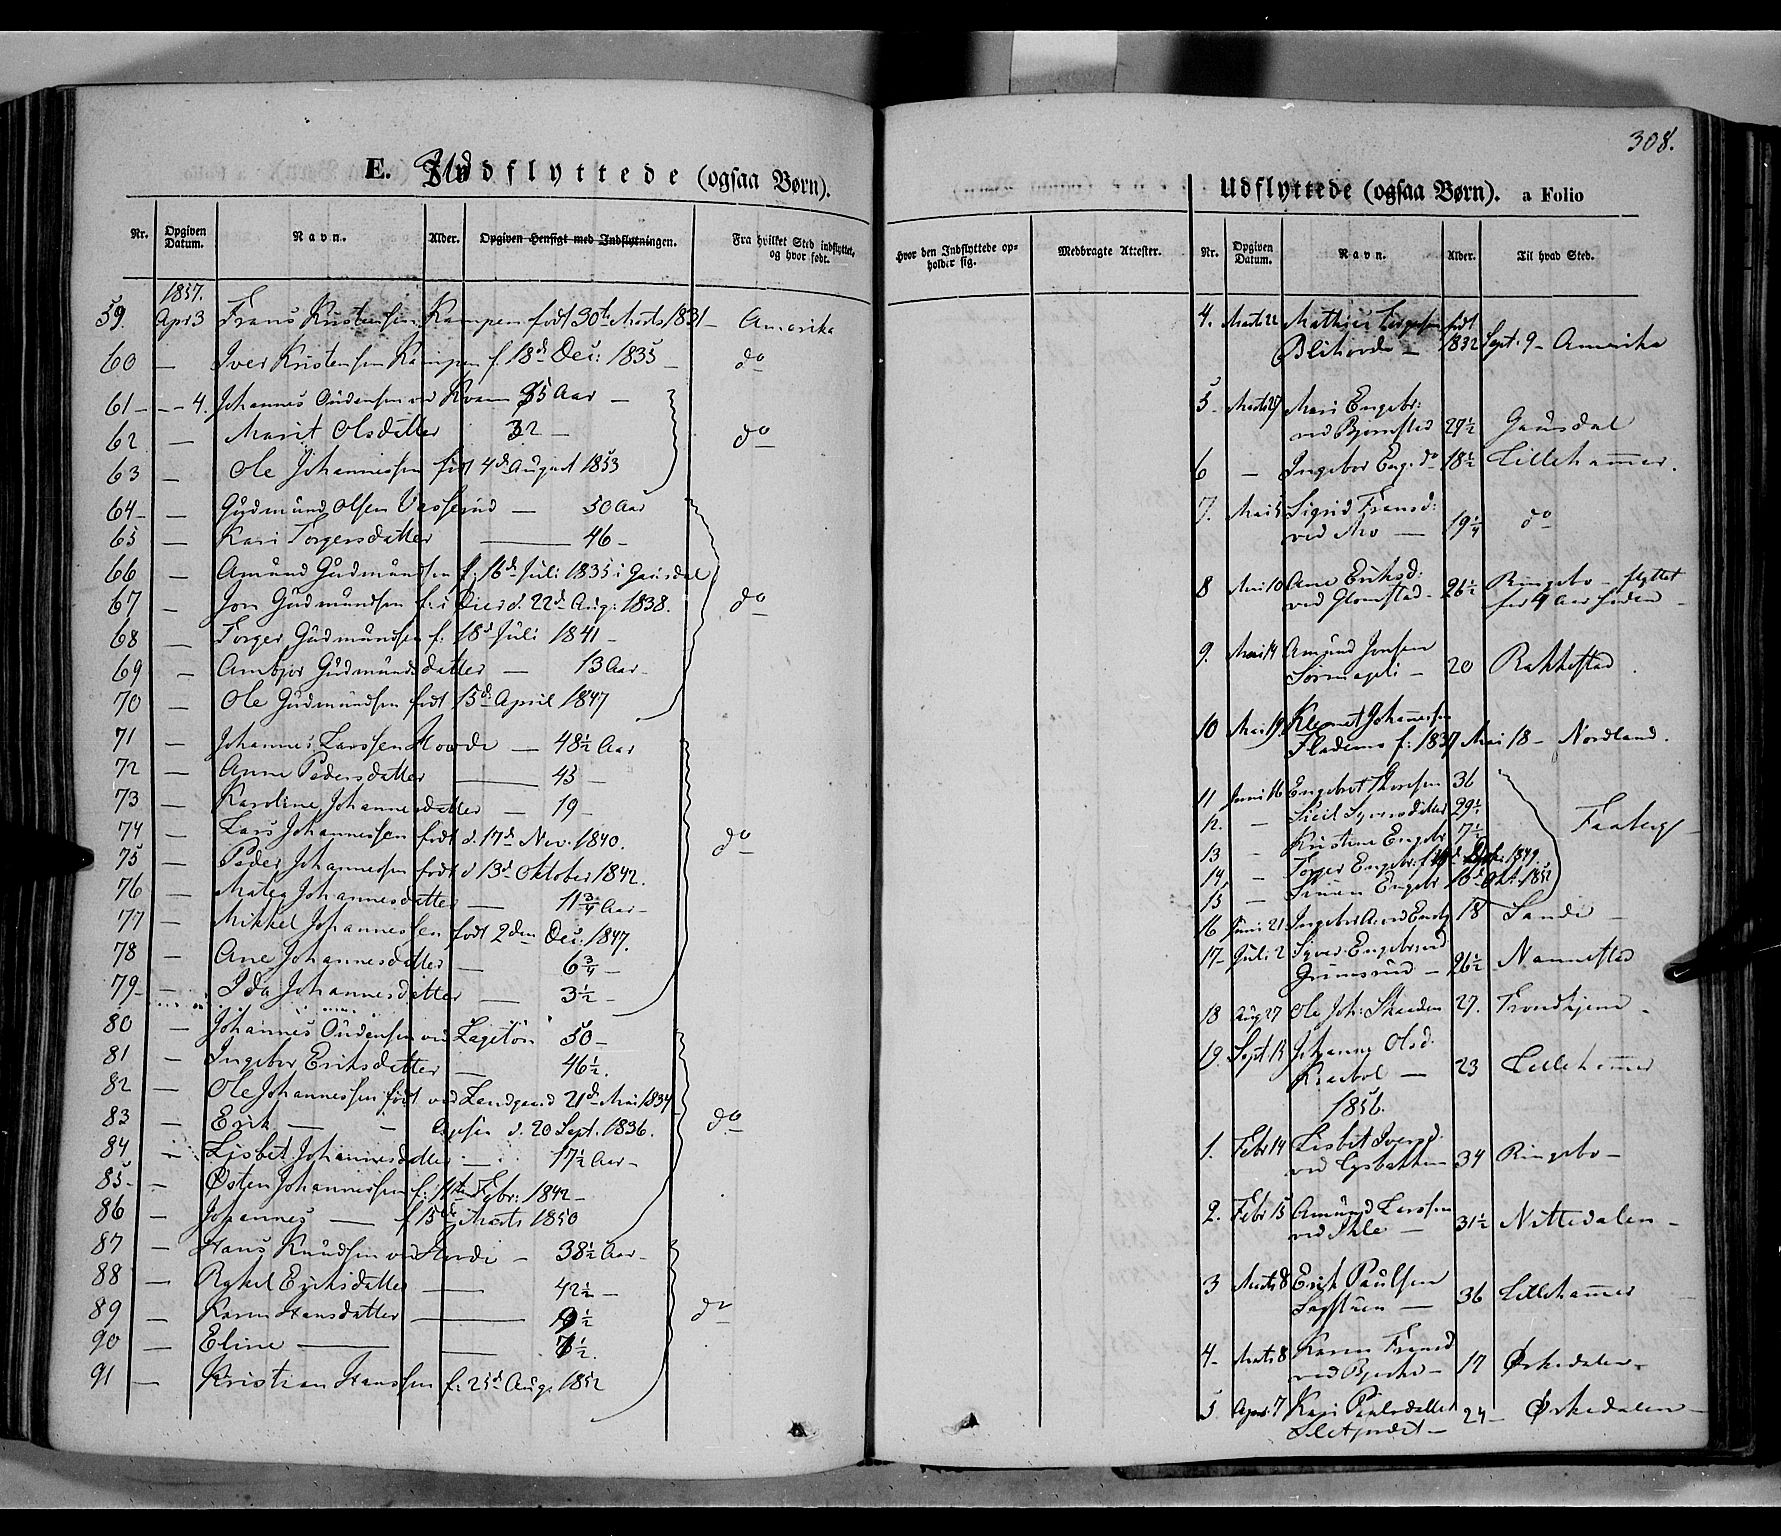 308.
E. Udflyttede (ogsaa Børn).
Nr. Opgiven Datum. Navn. Alder. Opgiven Hensigt med Indflytningen. Fra hvilket Sted indflyttet, og hvor født.
1857.
59. Apr 3 Frans Kristensen Kampen født 30te Marts 1831 - Amerika
60 — Iver Kristensen Kampen f. 18de Dec: 1835 - do
61 - - 4. Johannes Oudensen ved Kvam 35 Aar -
62 — Marit Olsdatter 32 - do
63 — Ole Johannessen født 4de August 1853
64 - — Gudmund Olsen - 50 Aar
65 — Kari Torgersdatter — 46 -
66 — Amund Gudmundsen f. 16de Juli 1835 i Gausdal
67 — Jon Gudmundsen f: i Øier d. 22de Aug: 1838. do
68 — Torger Gudmundsen f. 18de Juli 1841 -
69 — Ambjør Gudmundsdatter — 13 Aar -
70 — Ole Gudmundsen født 15de April 1847
71 — Johannes Larssen Hovde — 48½ Aar
72 — Anne Pedersdatter — 43 -
73 — Karoline Johannesdatter — 19 -
74 — Lars Johannessen født d. 17de Nov. 1840. do
75 — Peder Johannessen født d 13de Oktober 1842.
76 — Mathea Johannesdatter — 11¾ Aar -
77 — Mikkel Johannessen født 2den Dec: 1847.
78 — Ane Johannesdatter — 6¾ -
79 - — Ida Johannesdatter — 3½ -
80 — Johannes Oudensen ved 50 -
81 — Ingebor Eriksdatter — 46½.
82 — Ole Johannessen født ved Landgaard 21de Mai 1834
83 — Erik — d. 20 Sept. 1836. do
84 — Lisbet Johannesdatter — 17½ Aar -
85 - - Østen Johannessen f: 11te Febr: 1842 -
86 — Johannes — f 15de Marts 1850
87 — Hans Knudsen ved Hovde - 38½ Aar -
88 — Rakel Eriksdatter — 42½ -
89 — Karen Hansdatter — 9½ do
90 — Eline — 7½.
91 — Kristian Hanssen f: 25de Aug: 1852
Hvor den Indflyttede opholder sig. Medbragte Attester.
Udflyttede (ogsaa Børn). a Folio
Nr. Opgiven Datum. Navn. Alder. Til hvad Sted.
4. Marts 22 Mathias født
1832 Sept. 9 - Amerika
5 - Marts 27 Mari Engebr:
ved Bjørnstad 29½ Gausdal
6 — Ingebor Eng: do 18½ Lillehammer.
7. Mai 5 Sigrid Fransd:
ved Mo — 19¼ do
8 Mai 10 Ane Eriksd:
ved Glomstad - 26½ Ringebo - flyttet
for 4 Aar siden -
9. Mai 14 Amund Jonsen
20 Rakkestad.
10 Mai 19 Klemet Johannessen
f: 1837 Mai 18 - Nordland.
11 Juni 16 Engebret Thoresen 36
12. — Siril Syversdatter 29½
13 — Kristine Engebr 7½ Faaberg -
14 — Torger Engebr: 1849.
15 — Simen Engebr 10de Okt: 1852
16 Juni 21 Ingebor 18 Sande -
17 - Juli 2 Syver Engebr. ved
Grimsrud — 26½ Nannestad
18 Aug 27 Ole Joh: Skaaden 27. Trondhjem -
19. Sept 13 Johanne Olsd.
Kraabøl — 23 Lillehammer
1856.
1. Febr 14 Lisbet Iversd.
ved 34 Ringebo -
2. Febr 15 Amund Larssen
ved — 31½ Nittedalen -
3 Marts 8 Erik Paulsen
Sagstuen — 36 Lillehammer
4 - Marts 8 Karen Fransd
ved Bjerke - 17 Ørkedalen -
5 Apr. 7 Kari Paulsdatter
24 - Ørkedalen -